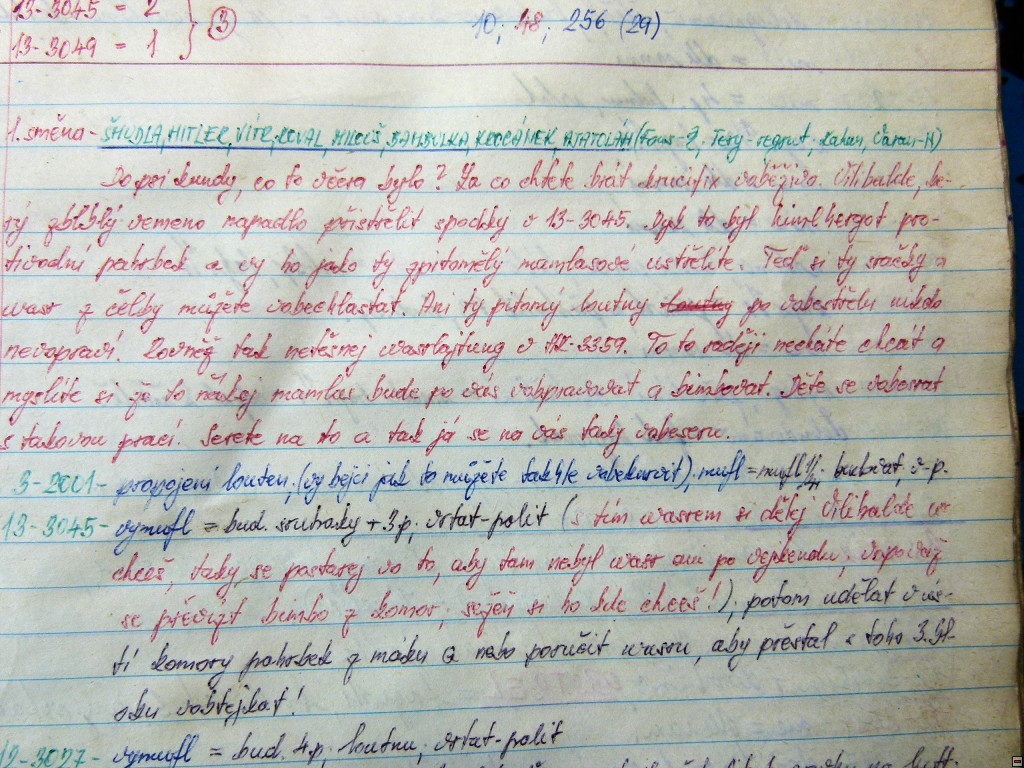 13-3045 = 2
13-3049 = 1 } 3
10; 48; 256 (29)
1. směna - ŠMUDLA, HITLER, VÍTR, KOVAL, MILOUŠ, BAMBULKA, KROCÁNEK, AJATOLÁH (Fous-Ž, Tesy-regrut, Kahan,
Do psí kundy, co to včera bylo? Za co chcete brát krucifix vobživo. Vilibalde, ke-
rý zblblý vemeno napadlo přistřelit spodky v 13-3045. Dyk to byl himlhergot pro-
tivodní patrbek a vy ho jako ty zpitomělý mamlasové ustřelíte. Teď si ty sračky a
wasr z čelby můžete vobechlastat. Ani ty pitomý loutny po vobestřelu nikdo
nevopraví. Rovněž tak netěsnej wasrlajtung v 3359. To to raději necháte chcát a
myslíte si že to nějakej mamlas bude po vás vobpravovat a bimbovat. Děte se vobesrat
s takovou prací. Serete na to a tak já se na vás taky vobeseru.
3-2001 - propojení louten, (vy bejci jak to můžete takhle vobekurvit), mufl = budovat, v-p.
13-3045 - vymufl = bud. sruhaky + 3p. vrtat-palit (s tím wasrem si dělej Vilibalde co
chceš, taky se postarej vo to, aby tam nebyl wasr ani po vejkendu, vopovaž
se převízt bimbo z komor, sežeň si ho kde chceš!), potom udělat v ús-
tí komory patrbek z máku a nebo poručit wasru, aby přestal z toho 3. bl-
oku vobtejkat!
vymufl = bud. 4p. loutnu, vrtat-palit